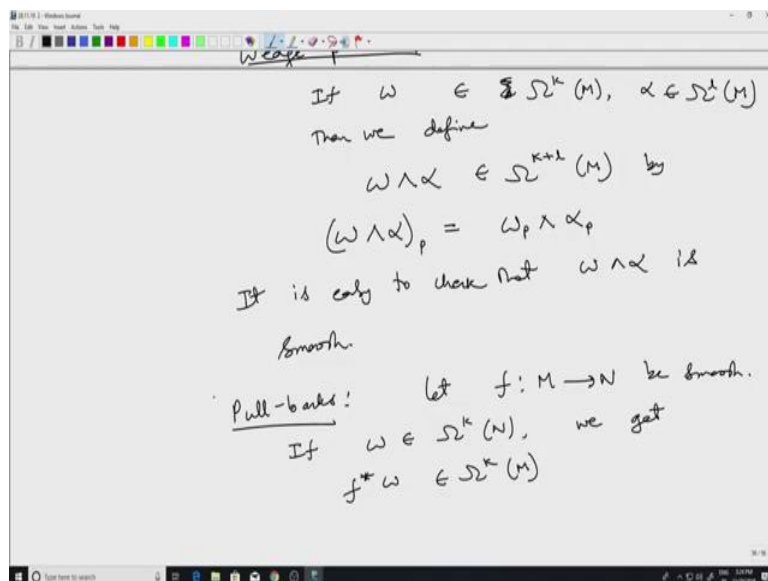 File Edit View Insert Actions Tools Help
If ω ∈ Ω^k (M), α ∈ Ω^l (M)
Then we define
ω ∧ α ∈ Ω^{k+l} (M) by
(ω ∧ α)_p = ω_p ∧ α_p
It is easy to check that ω ∧ α is
smooth.
Pull-backs: Let f : M → N be smooth.
If ω ∈ Ω^k (N), we get
f* ω ∈ Ω^k (M)
Type here to search